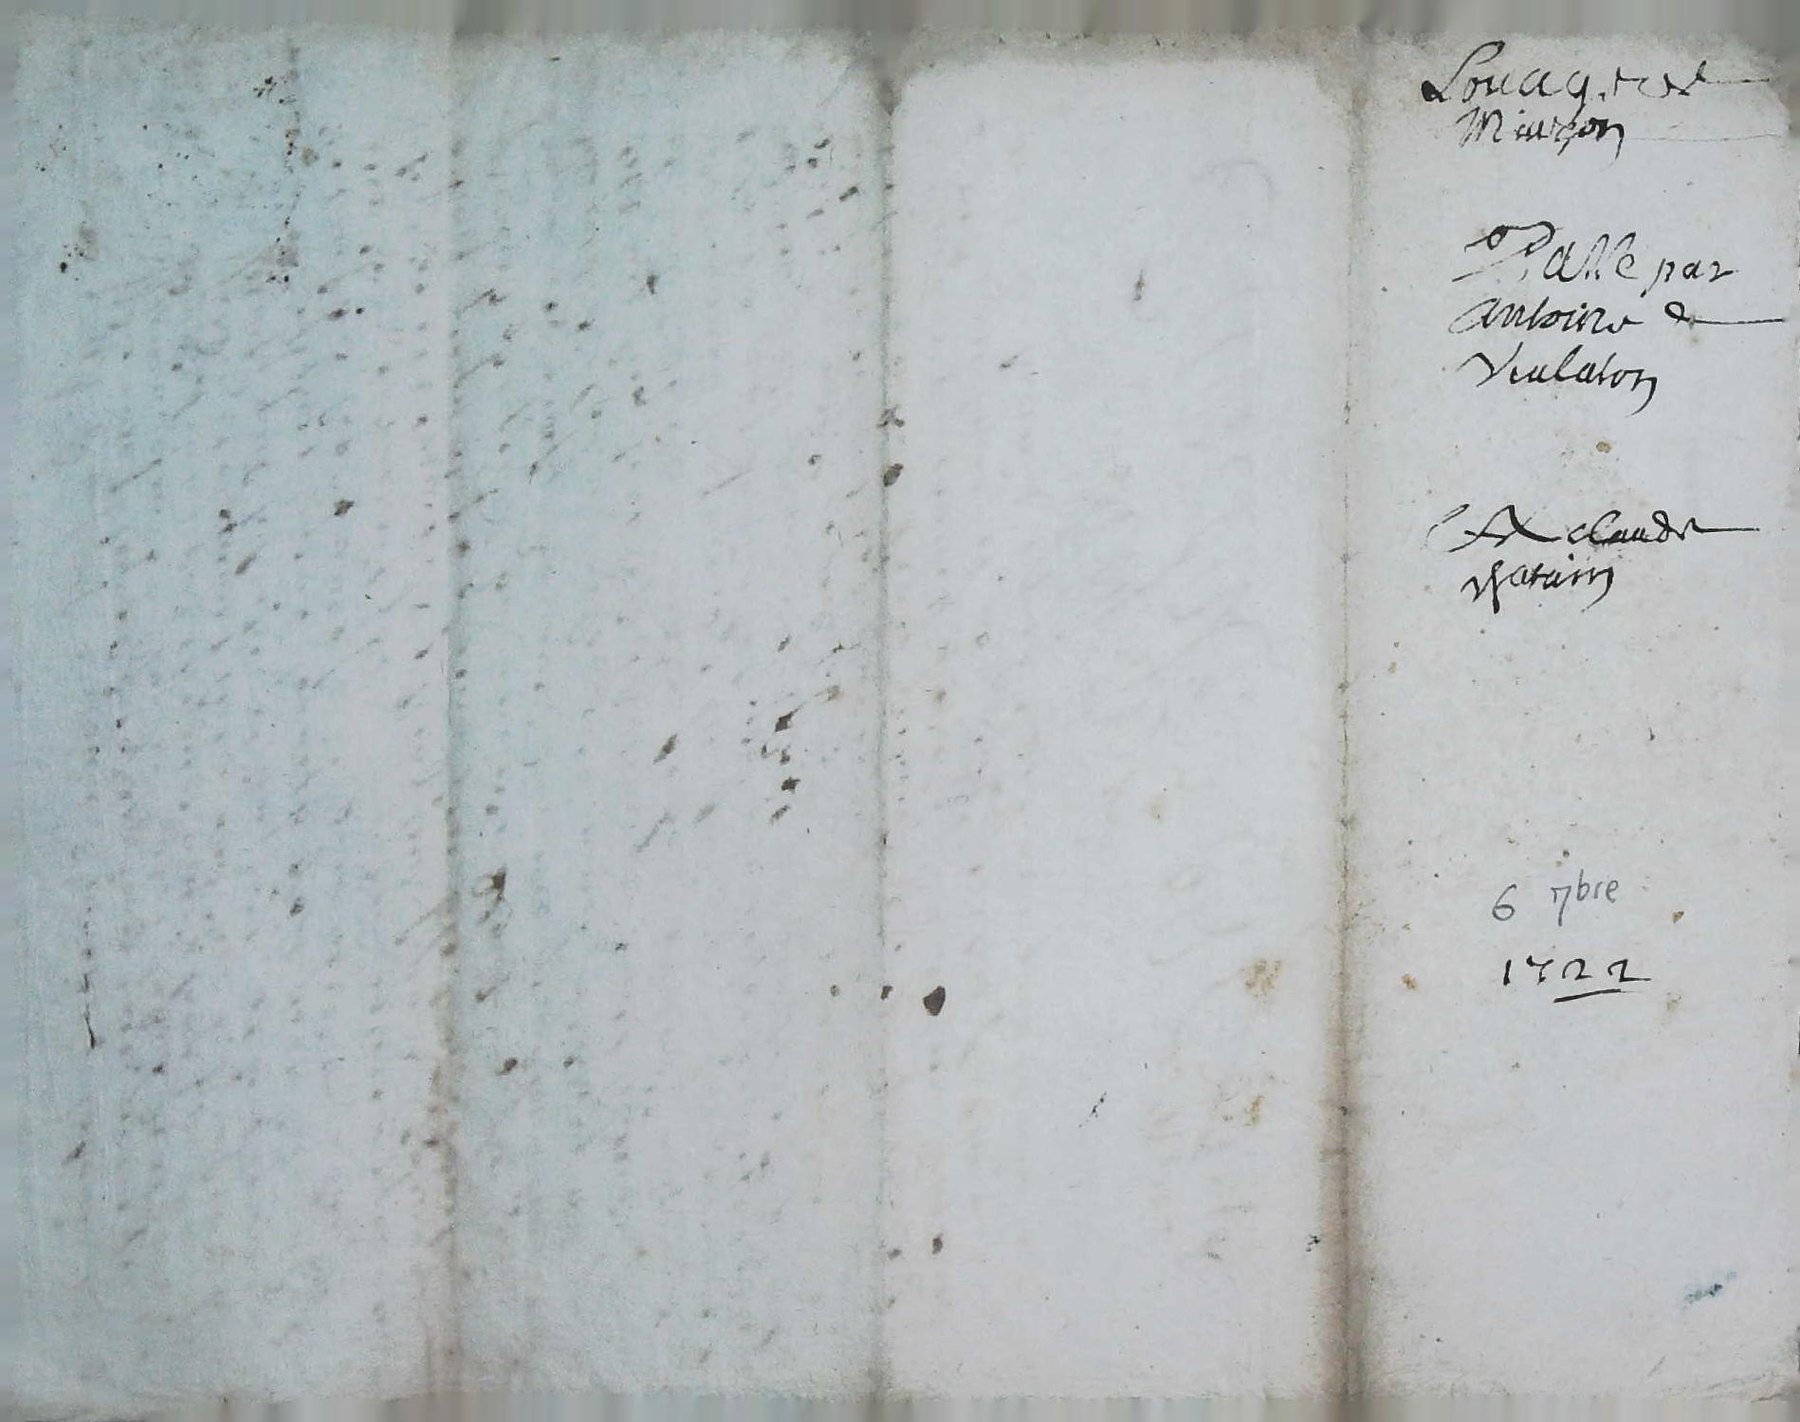 Louage de
Maison
Passé par
Antoine de
Vialaton
A Claude
Vatain
6 7bre
1722